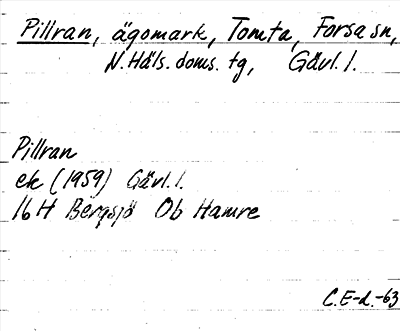 Pillran, ägomark, Tomta, Forsa sn,
N. Häls. doms. tg, Gävl. l.
Pillran
ek (1959) Gävl. l.
16 H Bergsjö Ob Hamre
C. E-d.-63